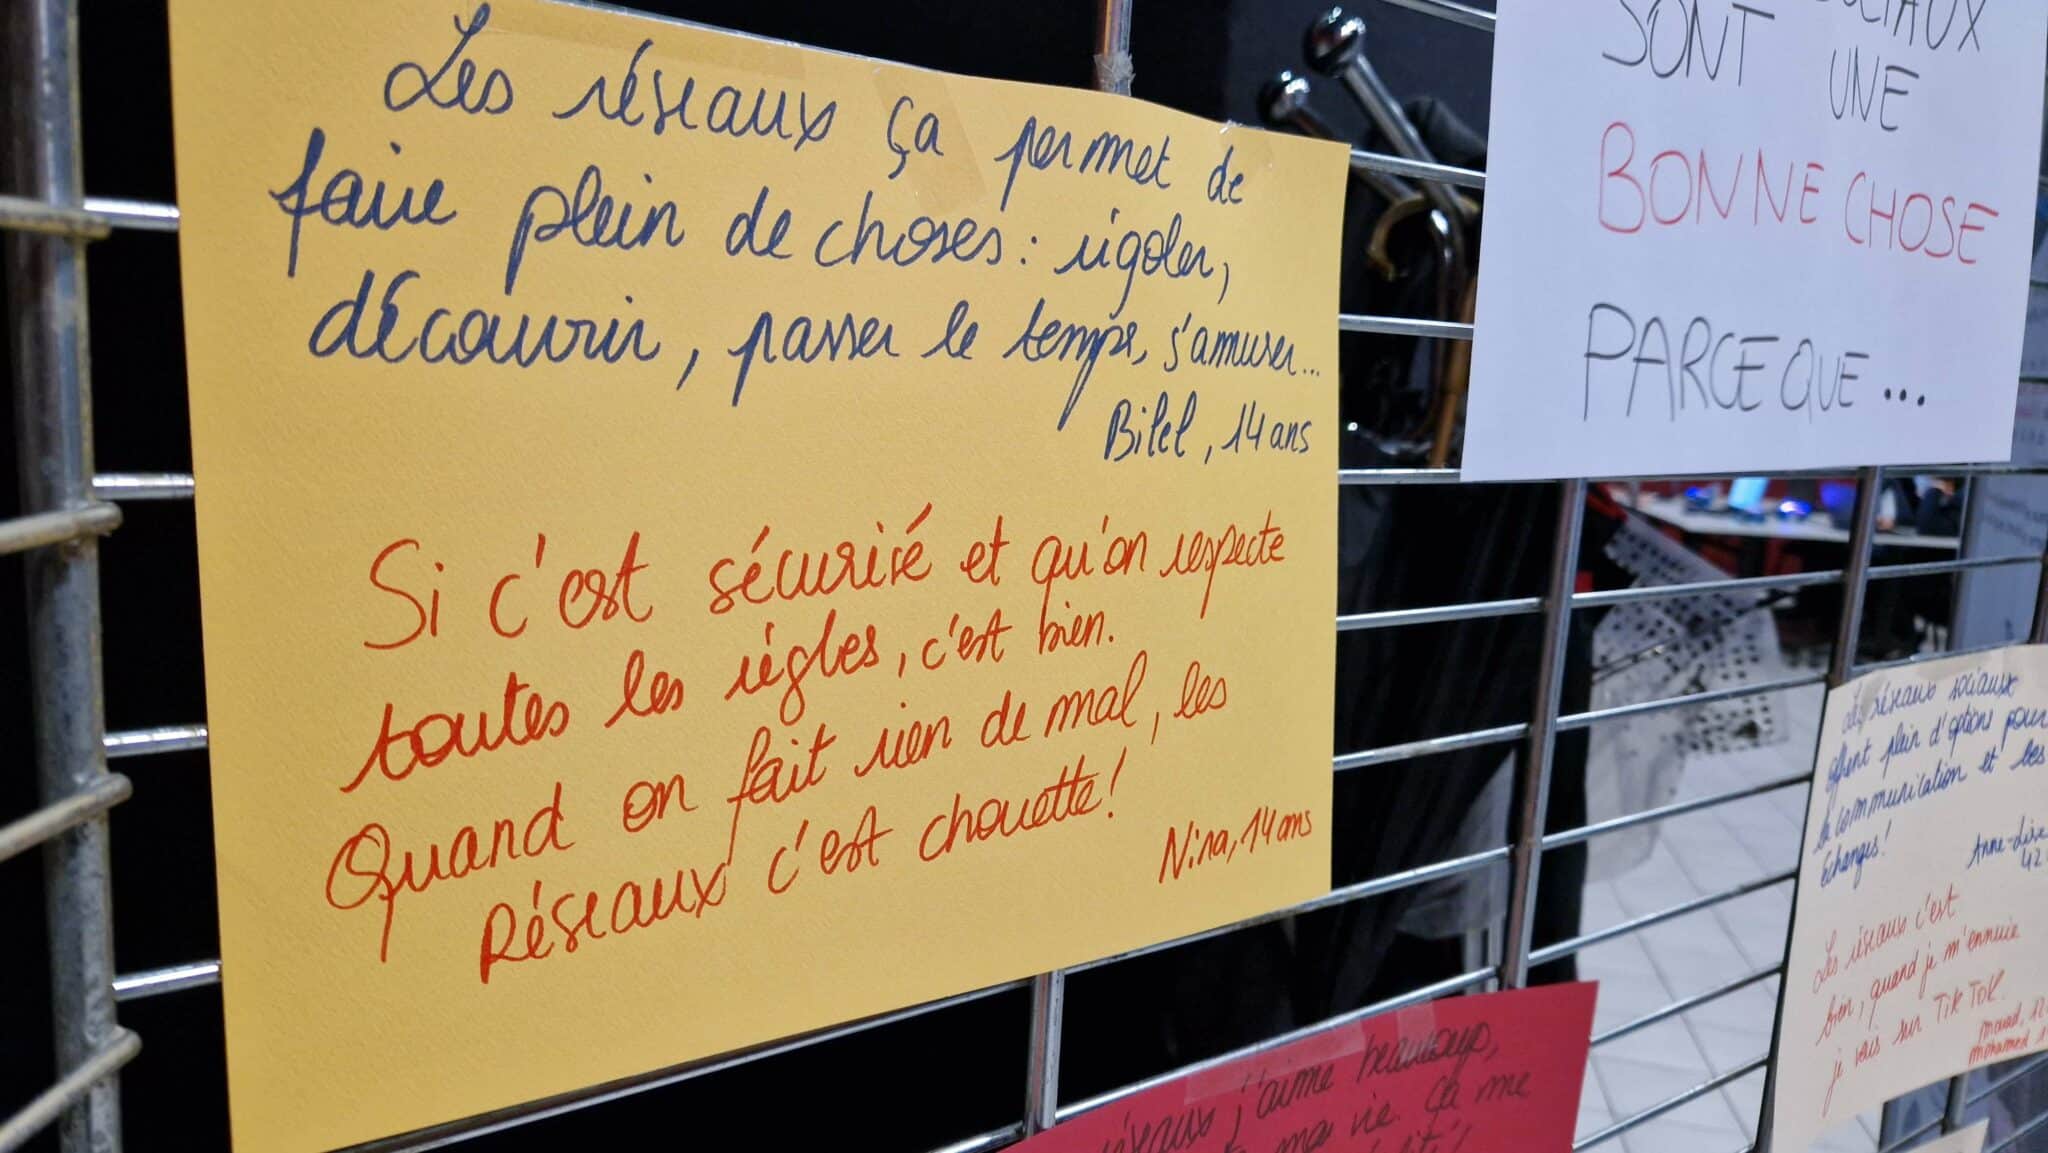 Les réseaux ça permet de
faire plein de choses : rigoler,
découvrir, passer le temps, s'amuser...
Bilel, 14 ans
Si c'est sécurisé et qu'on respecte
toutes les règles, c'est bien.
Quand on fait rien de mal, les
Réseaux c'est chouette !
Nina, 14 ans
SONT UNE
BONNE CHOSE
PARCE QUE ...
Les réseaux sociaux
offrent plein d'options pour
la communication et les
échanges !
Les réseaux c'est
bien, quand je m'ennuie
je vais sur TikTok.
Mohamed
réseaux j'aime beaucoup,
ma vie. Ça me